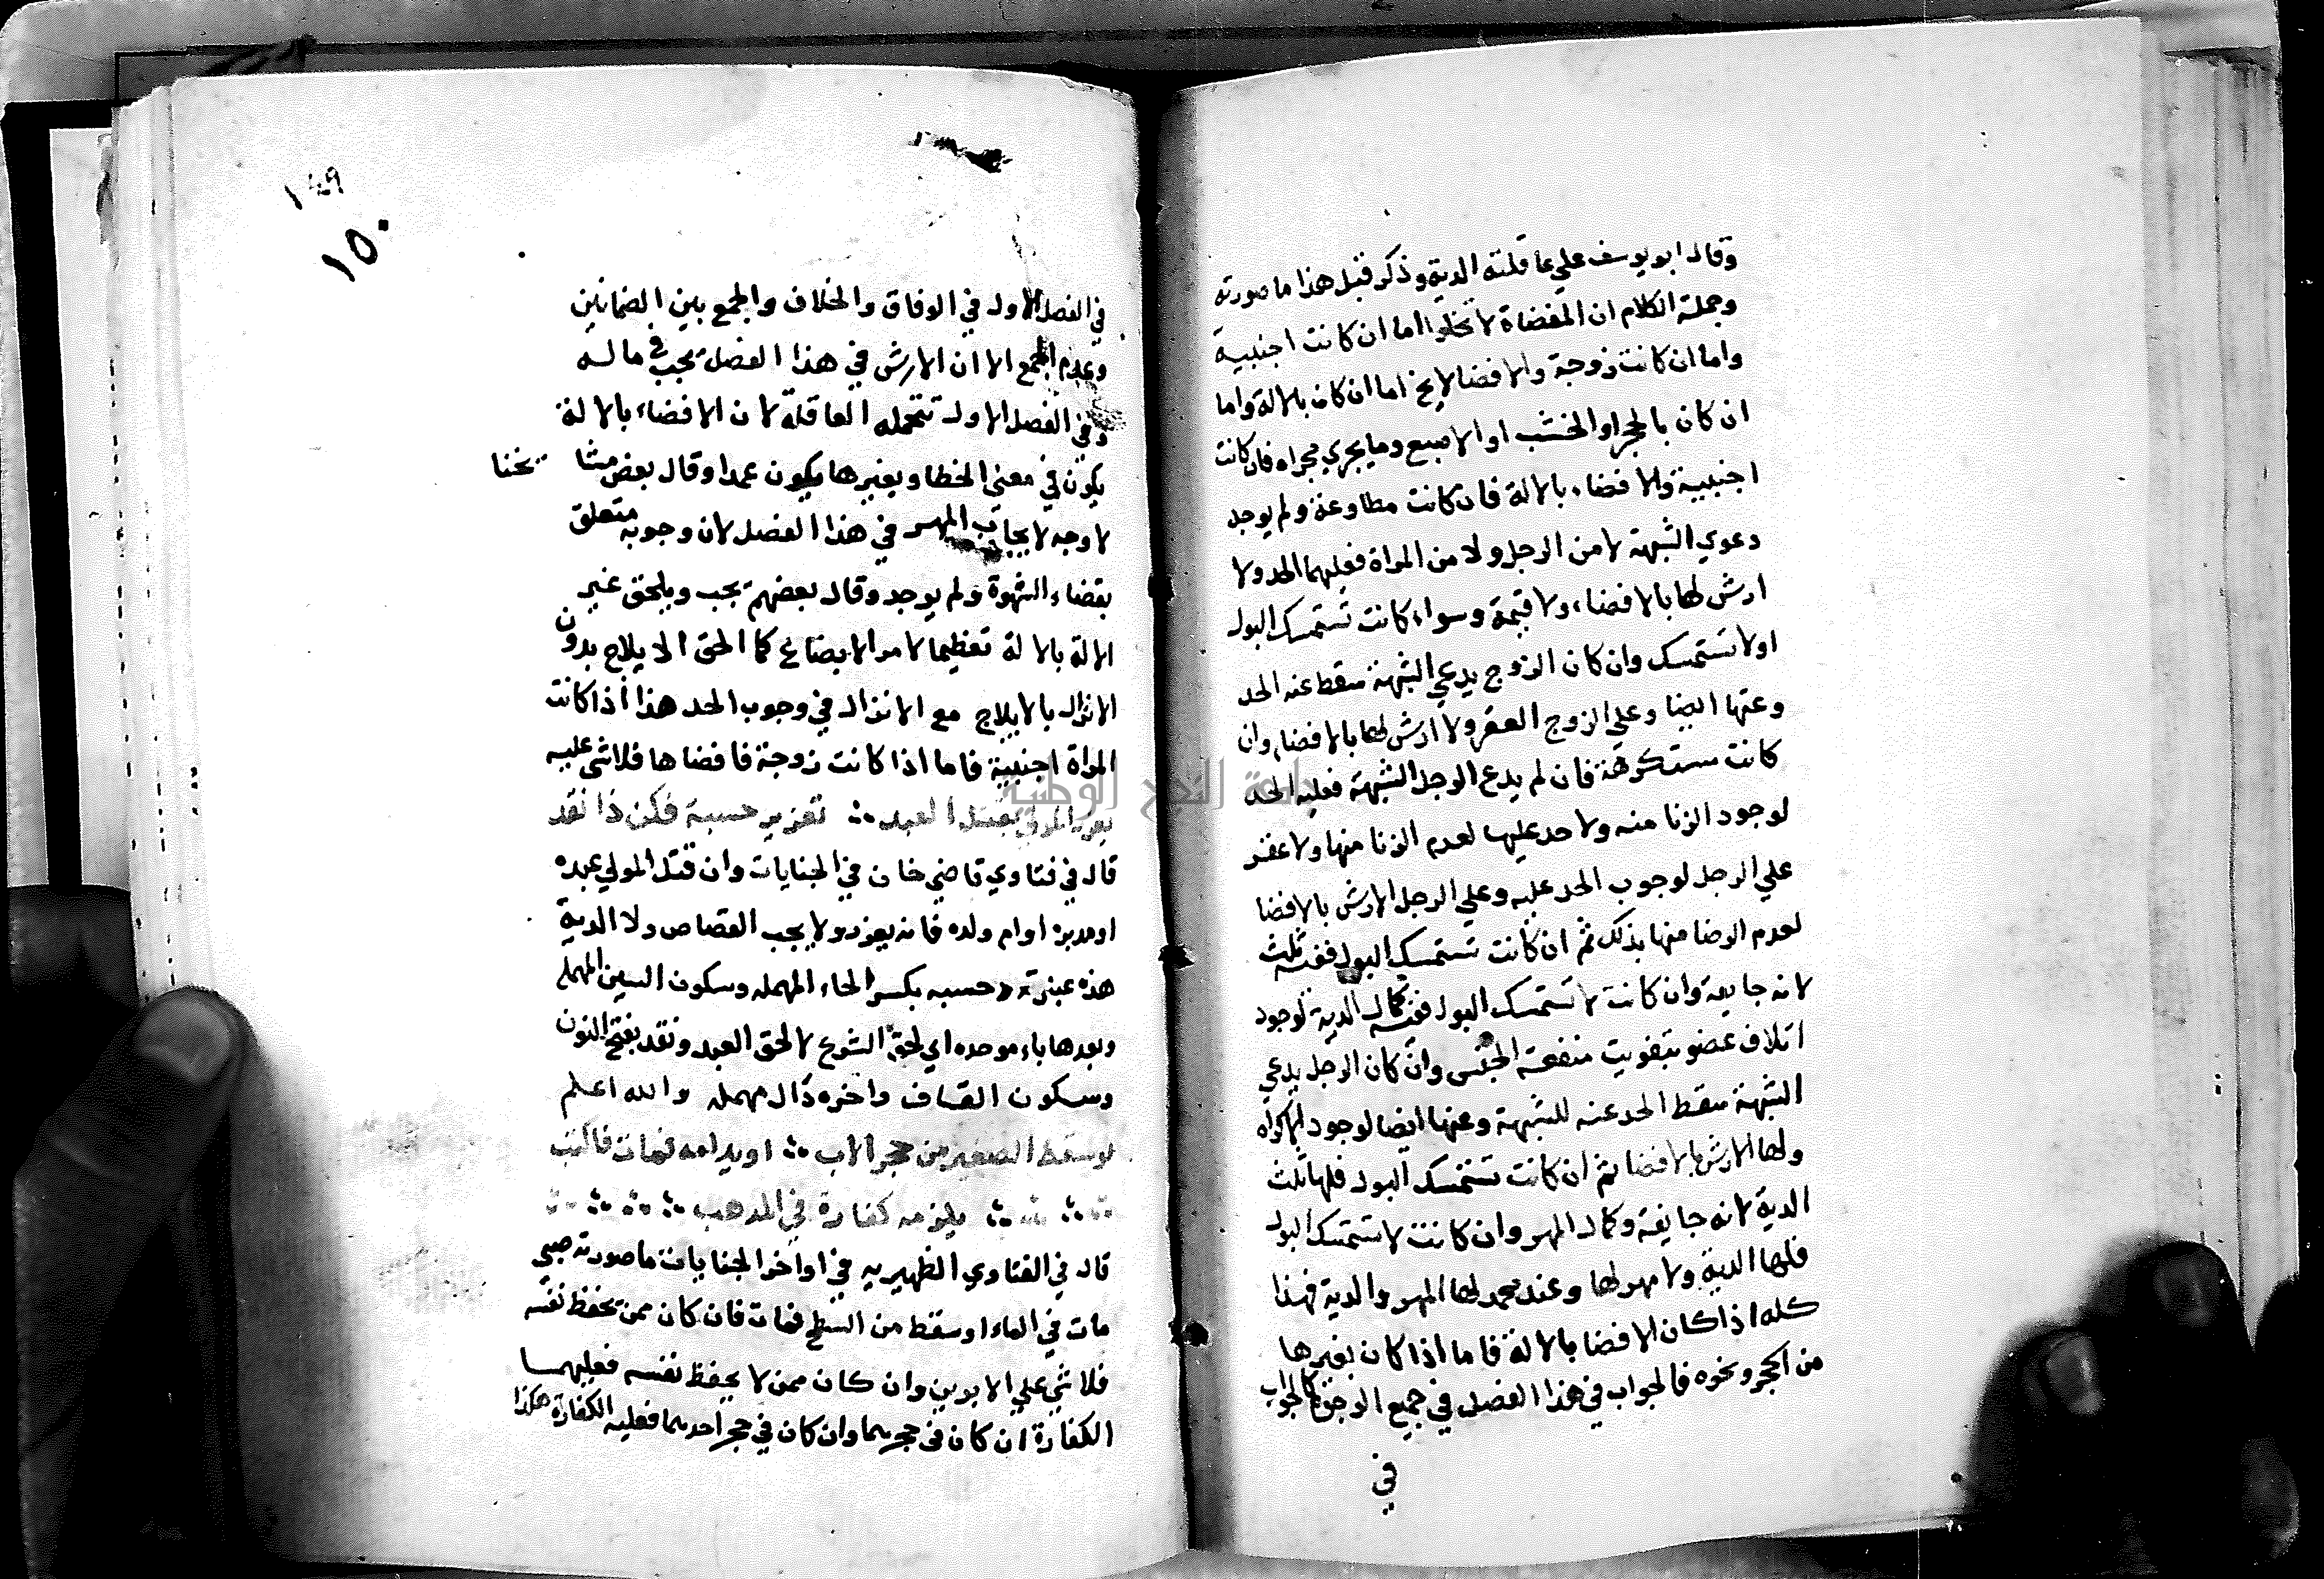 وقال ابو يوسف علي عاقلته الدية وذكر قبل هذا ما صورته
وجملة الكلام ان المفضاة لا تخلوا اما ان كانت اجنبية
واما ان كانت زوجة والافضا لا يخ اما ان كان بالالة واما
ان كان بالحجر او الخشب او الاصبع وما يجري مجراه فان كانت
اجنبية والافضاء بالالة فان كانت مطاوعة ولم يوجد
دعوي الشبهة لا من الرجل ولا من المراة فعليهما الحد ولا
ارش لها بالافضاء ولا قيمة وسواء كانت تستمسك البول
او لا تستمسك وان كان الزوج يدعي الشبهة سقط عنه الحد
وعنها ايضا وعلي الزوج العقر ولا ارش لها بالافضاء وان
كانت مستكرهة فان لم يدع الرجل الشبهة فعليه الحد
لوجود الزنا منه ولا حد عليها لعدم الزنا منها ولا عقر
علي الرجل لوجوب الحد عليه وعلي الرجل الارش بالافضا
لعدم الرضا منها بذلك ثم ان كانت تستمسك البول ففيه ثلث
لانه جايفة وان كانت لا تستمسك البول ففيه كمال الدية لوجود
اتلاف عضو بتفويت منفعة الجنس وان كان الرجل يدعي
الشبهة سقط الحد عنه للشبهة وعنها ايضا لوجود الاكراه
ولها الارش بالافضا ثم ان كانت تستمسك البول فلها ثلث
الدية لانه جايفة وكمال المهر وان كانت لا تستمسك البول
فلها الدية ولا مهر لها وعند محمد لها المهر والدية فهذا
كله اذا كان الافضا بالالة فاما اذا كان بغيرها
من الحجر ونحوه فالجواب في هذا الفصل في جميع الوجوه كالجواب
في
١٤٩
١٥٠
في الفصل الاول في الوفاق والخلاف والجمع بين الضمانين
وعدم الجمع الا ان الارش في هذا الفصل يجب في ماله
وفي الفصل الاول تتحمله العاقلة لان الافضاء بالالة
يكون في معني الخطا وبغيرها يكون عمدا وقال بعض مشا يخنا
لا وجه لا يجاب المهر في هذا الفصل لان وجوبه متعلق
بقضاء الشهوة ولم يوجد وقال بعضهم يجب ويلحق غير
الالة بالالة تعظيما لامر الابضاع كما الحق الايلاج بدون
الانزال بالايلاج مع الانزال في وجوب الحد هذا اذا كانت
المراة اجنبية فاما اذا كانت زوجة فافضاها فلا شي عليه
يعزر المولي بقتل العبد تعزير حسبة فكن ذا نقد
قال في فتاوي قاضي خان في الجنايات وان قتل المولي عبده
او مدبره او ام ولده فانه يعزر ولا يجب القصاص ولا الدية
هذه عبارته وحسبه بكسر الحاء المهمله وسكون السين المهمله
وبعدها باء موحده اي لحق الشرع لا لحق العبد ونقد بفتح النون
وسكون القاف واخره دال مهمله والله اعلم
لو سقط الصغير من حجر الاب او يد امه فمات فاكتب
يلزمه كفارة في المذهب
قال في الفتاوي الظهيريه في اواخر الجنايات ما صورته صبي
مات في الماء او سقط من السطح فمات فان كان ممن يحفظ نفسه
فلا شي علي الابوين وان كان ممن لا يحفظ نفسه فعليهما
الكفارة ان كان في حجرهما وان كان في حجر احدهما فعليه الكفارة هكذا
جامعة النجاح الوطنية